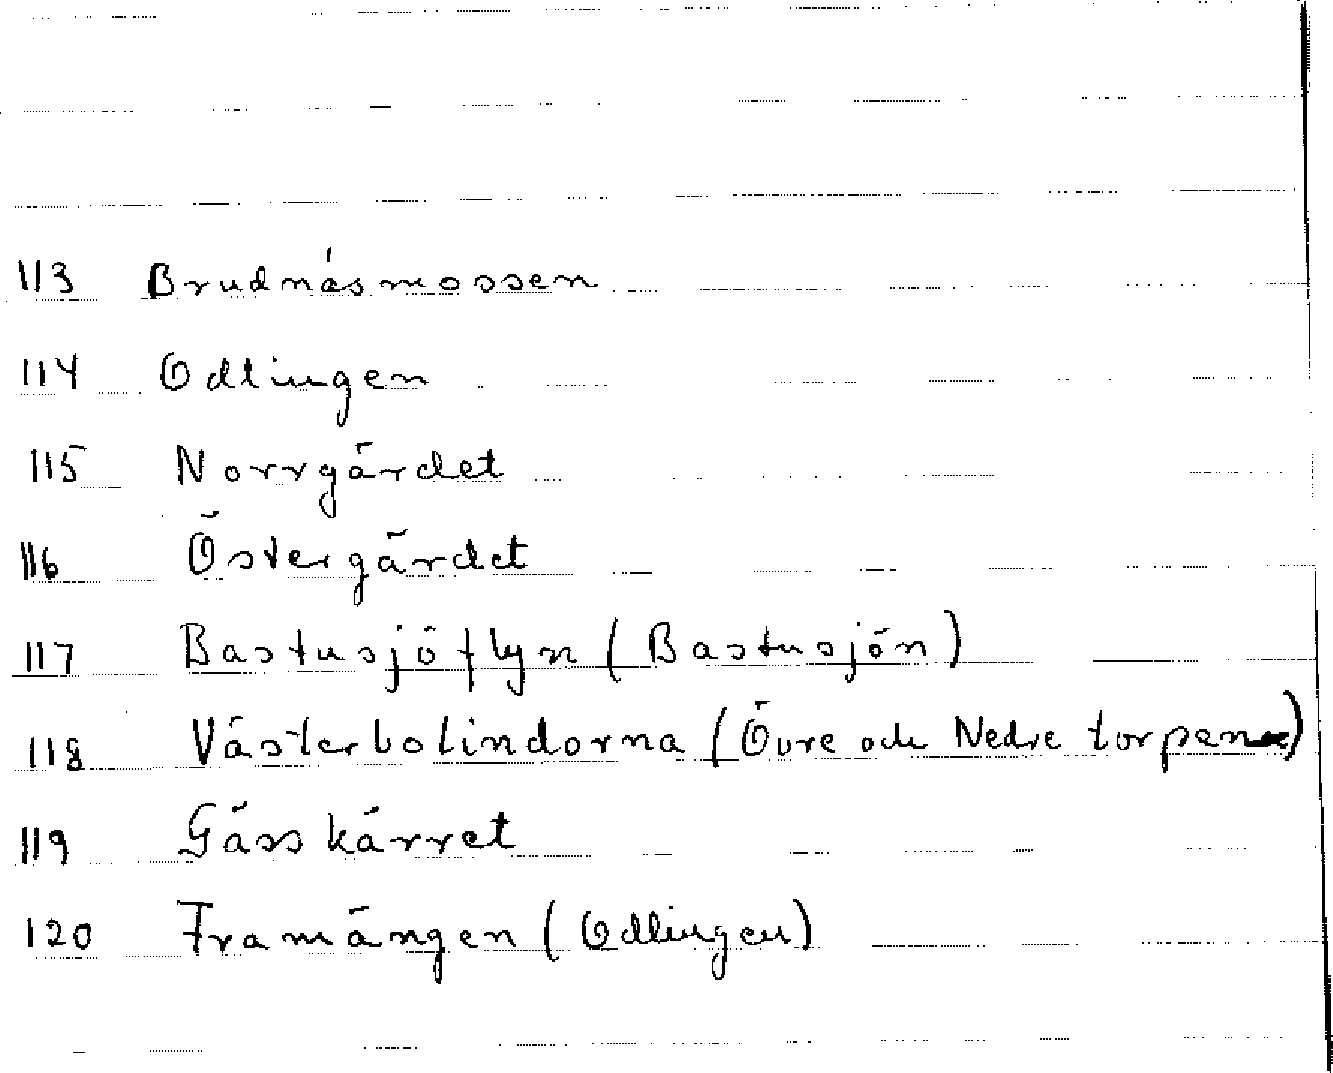 113 Brudnäsmossen
114 Odlingen
115 Norrgärdet
116 Östergärdet
117 Bastusjöflyn (Bastusjön)
118 Västerbolindorna (Övre och Nedre torpen)
119 Gässkärret
120 Framängen (Odlingen)